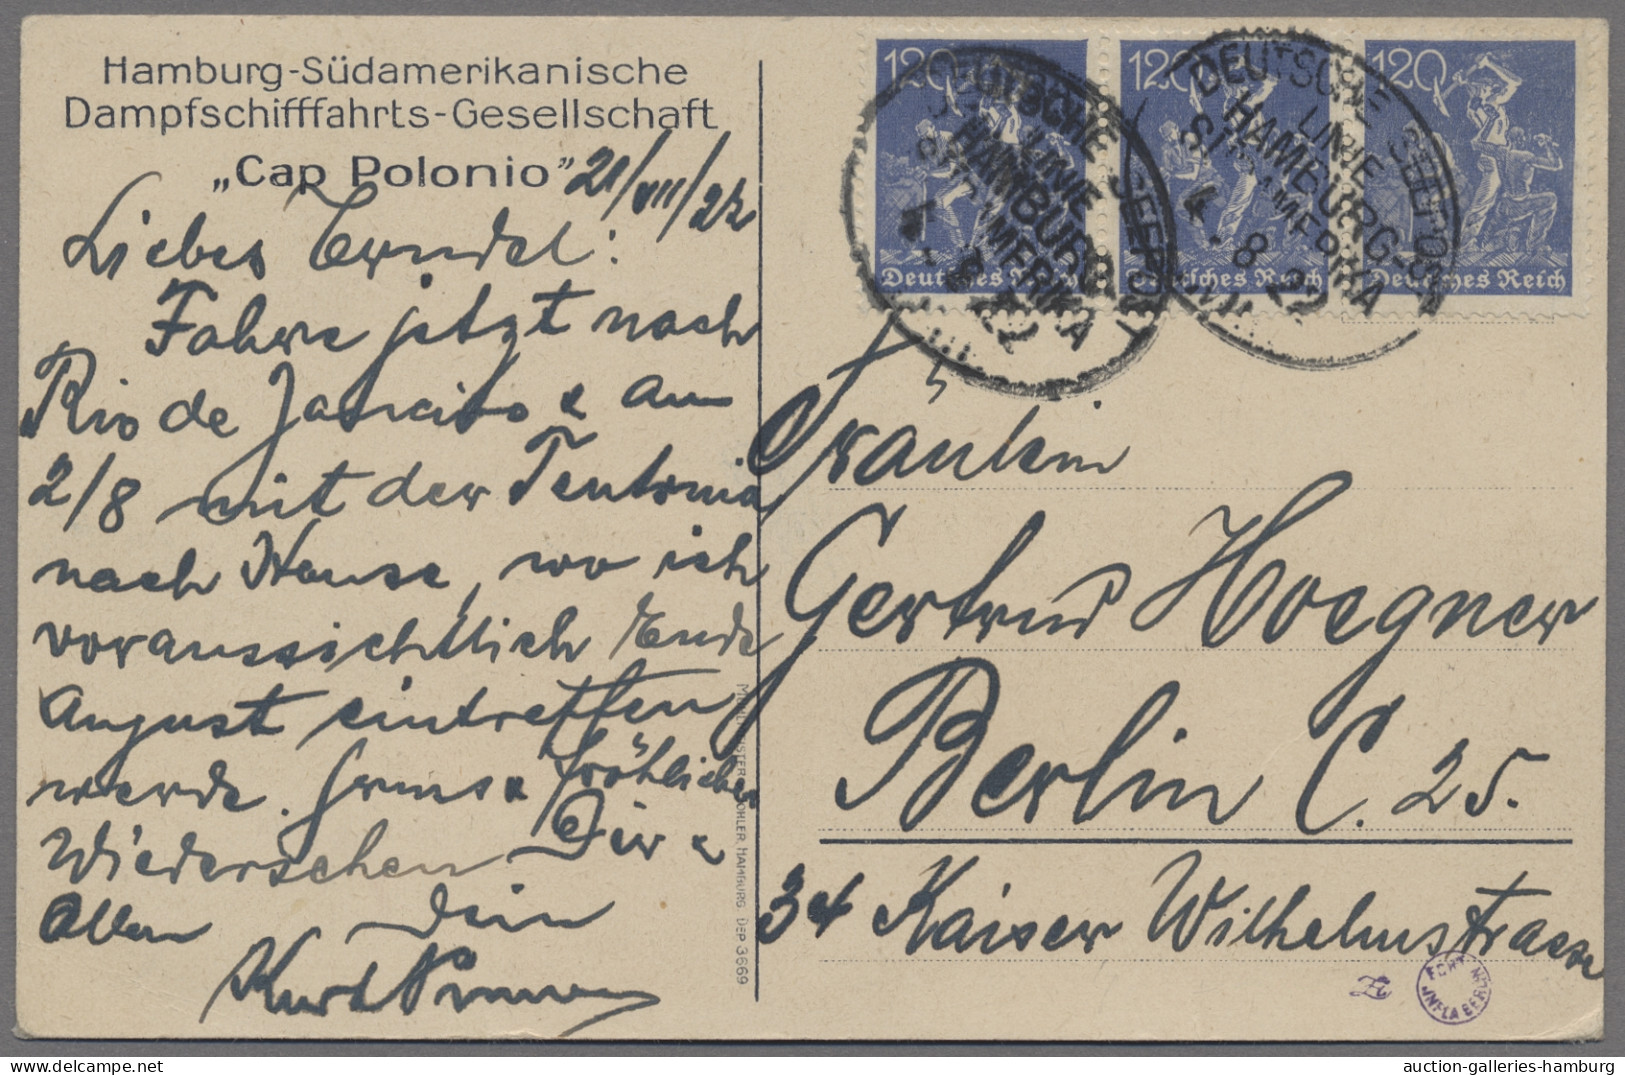 Hamburg-Südamerikanische
Dampfschifffahrts-Gesellschaft
„Cap Polonio"
21/VII/22
Liebes
Fahre jetzt nach
Rio de Janeiro & am
2/8 mit der Teutonia
nach Hause, wo ich
voraussichtlich Ende
August eintreffen
werde. Gruss & fröhliches
Wiedersehen Dir &
Allen Dein
Kurt
120 120 120
Deutsches Reich Deutsches Reich Deutsches Reich
DEUTSCHE SEEPOST
LINIE
HAMBURG-
SÜDAMERIKA
DEUTSCHE SEEPOST
LINIE
HAMBURG-
SÜDAMERIKA
4 - 8 22
Fräulein
Gertrud Hoegner
Berlin C. 25.
34 Kaiser Wilhelmstrasse
HAMBURG DEP 3669
ECHT
INFLA BERLIN
auction-galleries-hamburg